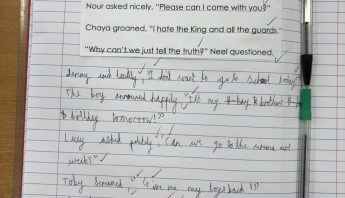 Nour asked nicely, "Please can I come with you?"
Chaya groaned, "I hate the King and all the guards."
"Why can't we just tell the truth?" Neel questioned.
and loudly, "I don't want to go to school today!"
The boy announced happily "It's my brother's
birthday tomorrow!"
Lucy asked politely, "Can we go to the next
week?"
Toby screamed "Give me my toys back!"